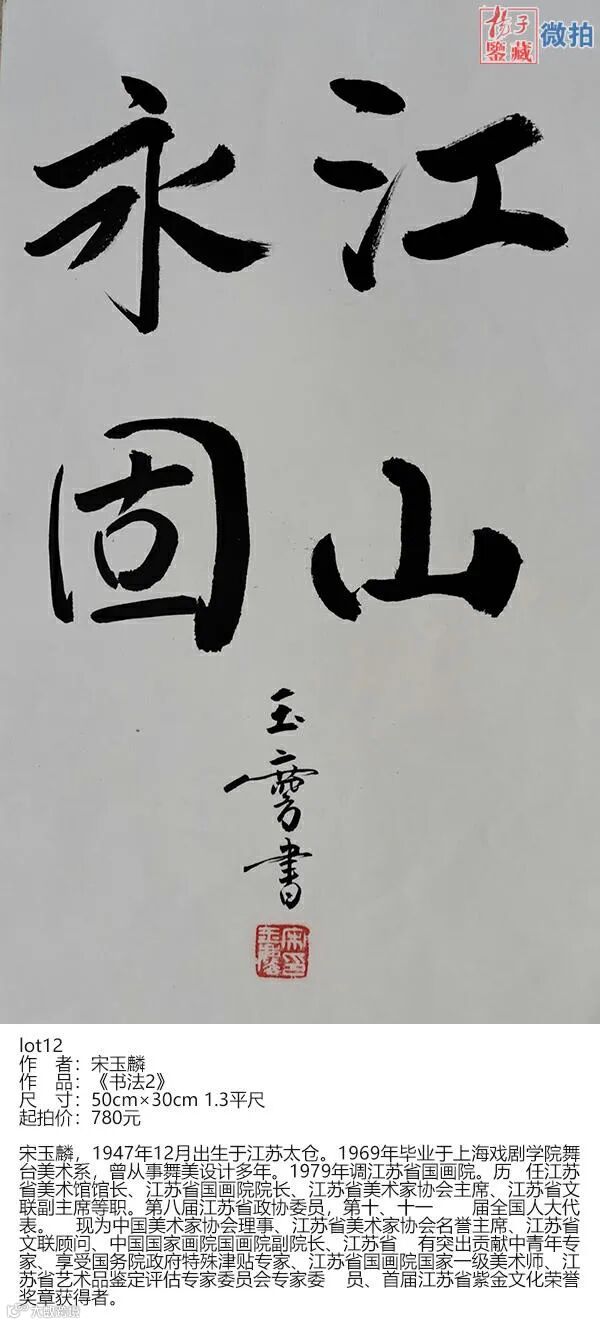 扬子
鑒藏 微拍
江山
永固
玉麐書
lot12
作 者：宋玉麟
作 品：《书法2》
尺 寸：50cm×30cm 1.3平尺
起拍价：780元
宋玉麟，1947年12月出生于江苏太仓。1969年毕业于上海戏剧学院舞
台美术系，曾从事舞美设计多年。1979年调江苏省国画院。历 任江苏
省美术馆馆长、江苏省国画院院长、江苏省美术家协会主席、江苏省文
联副主席等职。第八届江苏省政协委员，第十、十一 届全国人大代
表。 现为中国美术家协会理事、江苏省美术家协会名誉主席、江苏省
文联顾问、中国国家画院国画院副院长、江苏省 有突出贡献中青年专
家、享受国务院政府特殊津贴专家、江苏省国画院国家一级美术师、江
苏省艺术品鉴定评估专家委员会专家委 员、首届江苏省紫金文化荣誉
奖章获得者。